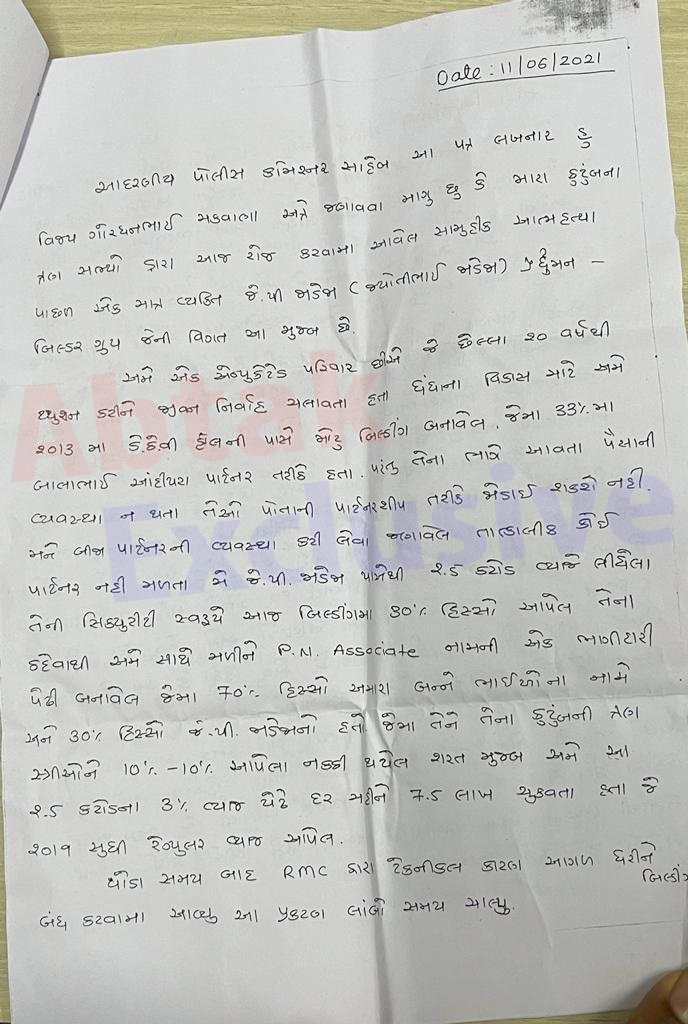 Date : 11/06/2021
આદરણીય પોલીસ કમિશ્નર સાહેબ આ પત્ર લખનાર હુ
વિજય ગોરધનભાઈ મકવાણા અત્રે જણાવવા માગુ છુ કે મારા કુટુંબના
ત્રણ સભ્યો દ્વારા આજ રોજ કરવામા આવેલ સામુહીક આત્મહત્યા
પાછળ એક માત્ર વ્યકિત જે.પી જાડેજા (જયોતીભાઈ જાડેજા) પ્રદ્યુમન –
બિલ્ડર ગ્રુપ જેની વિગત આ મુજબ છે.
અમે એક એજ્યુકેટેડ પરિવાર છીએ જે છેલ્લા ૨૦ વર્ષથી
ટ્યુશન કરીને જીવન નિર્વાહ ચલાવતા હતા ધંધાના વિકાસ માટે અમે
૨૦13 મા કે.કે.વી હોલની પાસે મોટુ બિલ્ડીંગ બનાવેલ. જેમા 33% મા
બાલાભાઈ આંદીપરા પાર્ટનર તરીકે હતા. પરંતુ તેના ભાગે આવતા પૈસાની
વ્યવસ્થા ન થતા તેઓ પોતાની પાર્ટનરશીપ તરીકે જોડાઈ શકશે નહી.
મને બીજા પાર્ટનરની વ્યવસ્થા કરી લેવા જણાવેલ તાત્કાલીક કોઈ
પાર્ટનર નહી મળતા મે જે.પી. જાડેજા પાસેથી ૨.5 કરોડ વ્યાજે લીધેલા
તેની સિક્યુરીટી સ્વરૂપે આજ બિલ્ડીંગમા 30% હિસ્સો આપેલ તેના
કહેવાથી અમે સાથે મળીને P.N. Associate નામની એક ભાગીદારી
પેઢી બનાવેલ જેમા 70% હિસ્સો અમારા બન્ને ભાઈઓના નામે
અને 30% હિસ્સો જે.પી. જાડેજાનો હતો. જેમા તેને તેના કુટુંબની ત્રણ
સ્ત્રીઓને 10% –10% આપેલા નક્કી થયેલ શરત મુજબ અમે આ
૨.5 કરોડના 3% વ્યાજ પેટે દર મહીને 7.5 લાખ ચુકવતા હતા જે
૨૦1૧ સુધી રેગ્યુલર વ્યાજ આપેલ.
થોડા સમય બાદ RMC દ્વારા ટેકનીકલ કારણ આગળ ધરીને
બિલ્ડીંગ
બંધ કરવામા આવ્યુ આ પ્રકરણ લાંબો સમય ચાલ્યુ.
Abtak
Exclusive